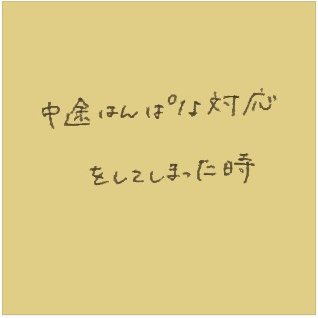 中途はんぱな対応
をしてしまった時